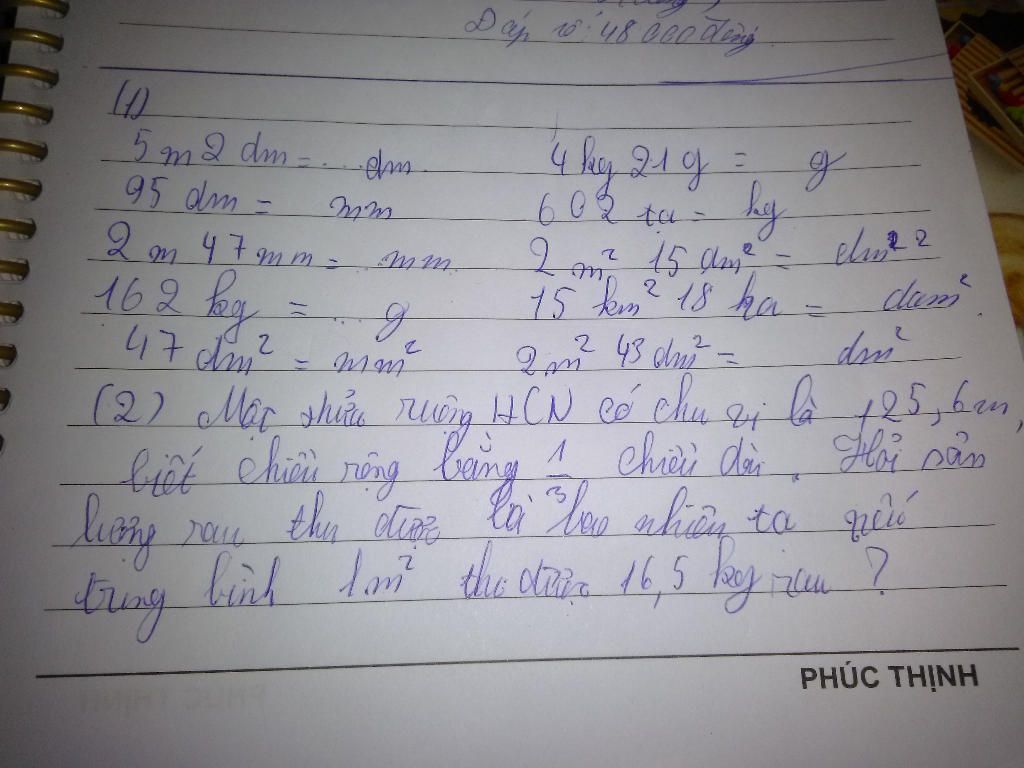 Đáp số: 48 000 đồng
(1)
5 m 2 dm = ... dm 4 kg 21 g = g
95 dm = mm 602 tạ = kg
2 m 47 mm = ... mm 2 m² 15 dm² = dm² 2
162 kg = ... g 15 km² 18 ha = dam²
47 dm² = mm² 2 m² 43 dm² = dm²
(2) Một thửa ruộng HCN có chu vi là 125,6 m,
biết chiều rộng bằng 1/3 chiều dài. Hỏi sản
lượng rau thu được là bao nhiêu tạ nếu
trung bình 1 m² thu được 16,5 kg rau ?
PHÚC THỊNH